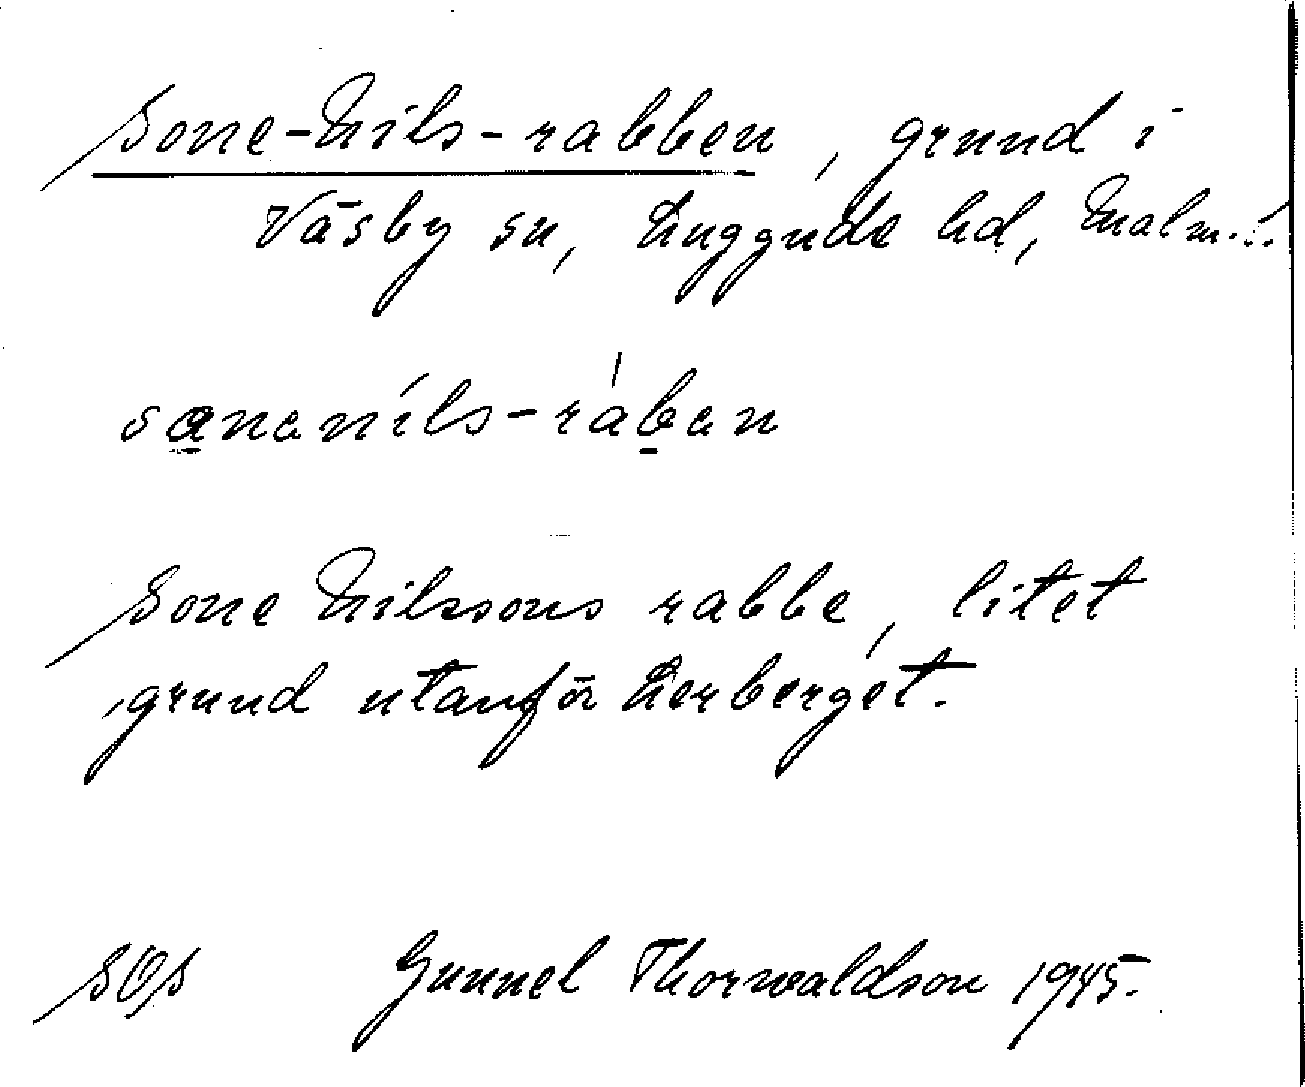 Sone-Nils-rabben, grund i
Väsby sn, Luggude hd, Malm.l.
sananils-ràban
Sone Nilssons rabbe, litet
grund utanför Lerberget.
SOS Gunnel Thorwaldson 1945.